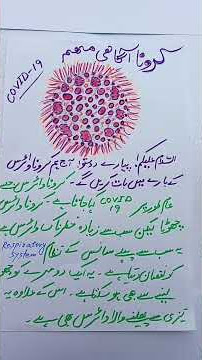 کرونا آگاهی مہم
COVID-19
السلام علیکم! پیارے دوستو! آج ہم کرونا وائرس
کے بارے میں بات کریں گے۔ کرونا وائرس جسے
عام طور پر COVID 19 کہا جاتا ہے۔ کرونا وائرس
چھوٹا لیکن سب سے زیادہ خطرناک وائرس ہے
یہ سب سے پہلے سانس کے نظام Respiratory System
کو نقصان دیتا ہے۔ یہ ایک دوسرے کو چھو
لینے سے بھی ہو سکتا ہے۔ اس کے علاوہ یہ
تیزی سے پھیلنے والا وائرس بھی ہے۔